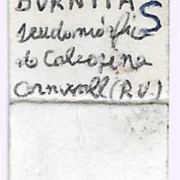 BURNITA S
seudomórfica
de Calcosina
Cornwall (R.U.)